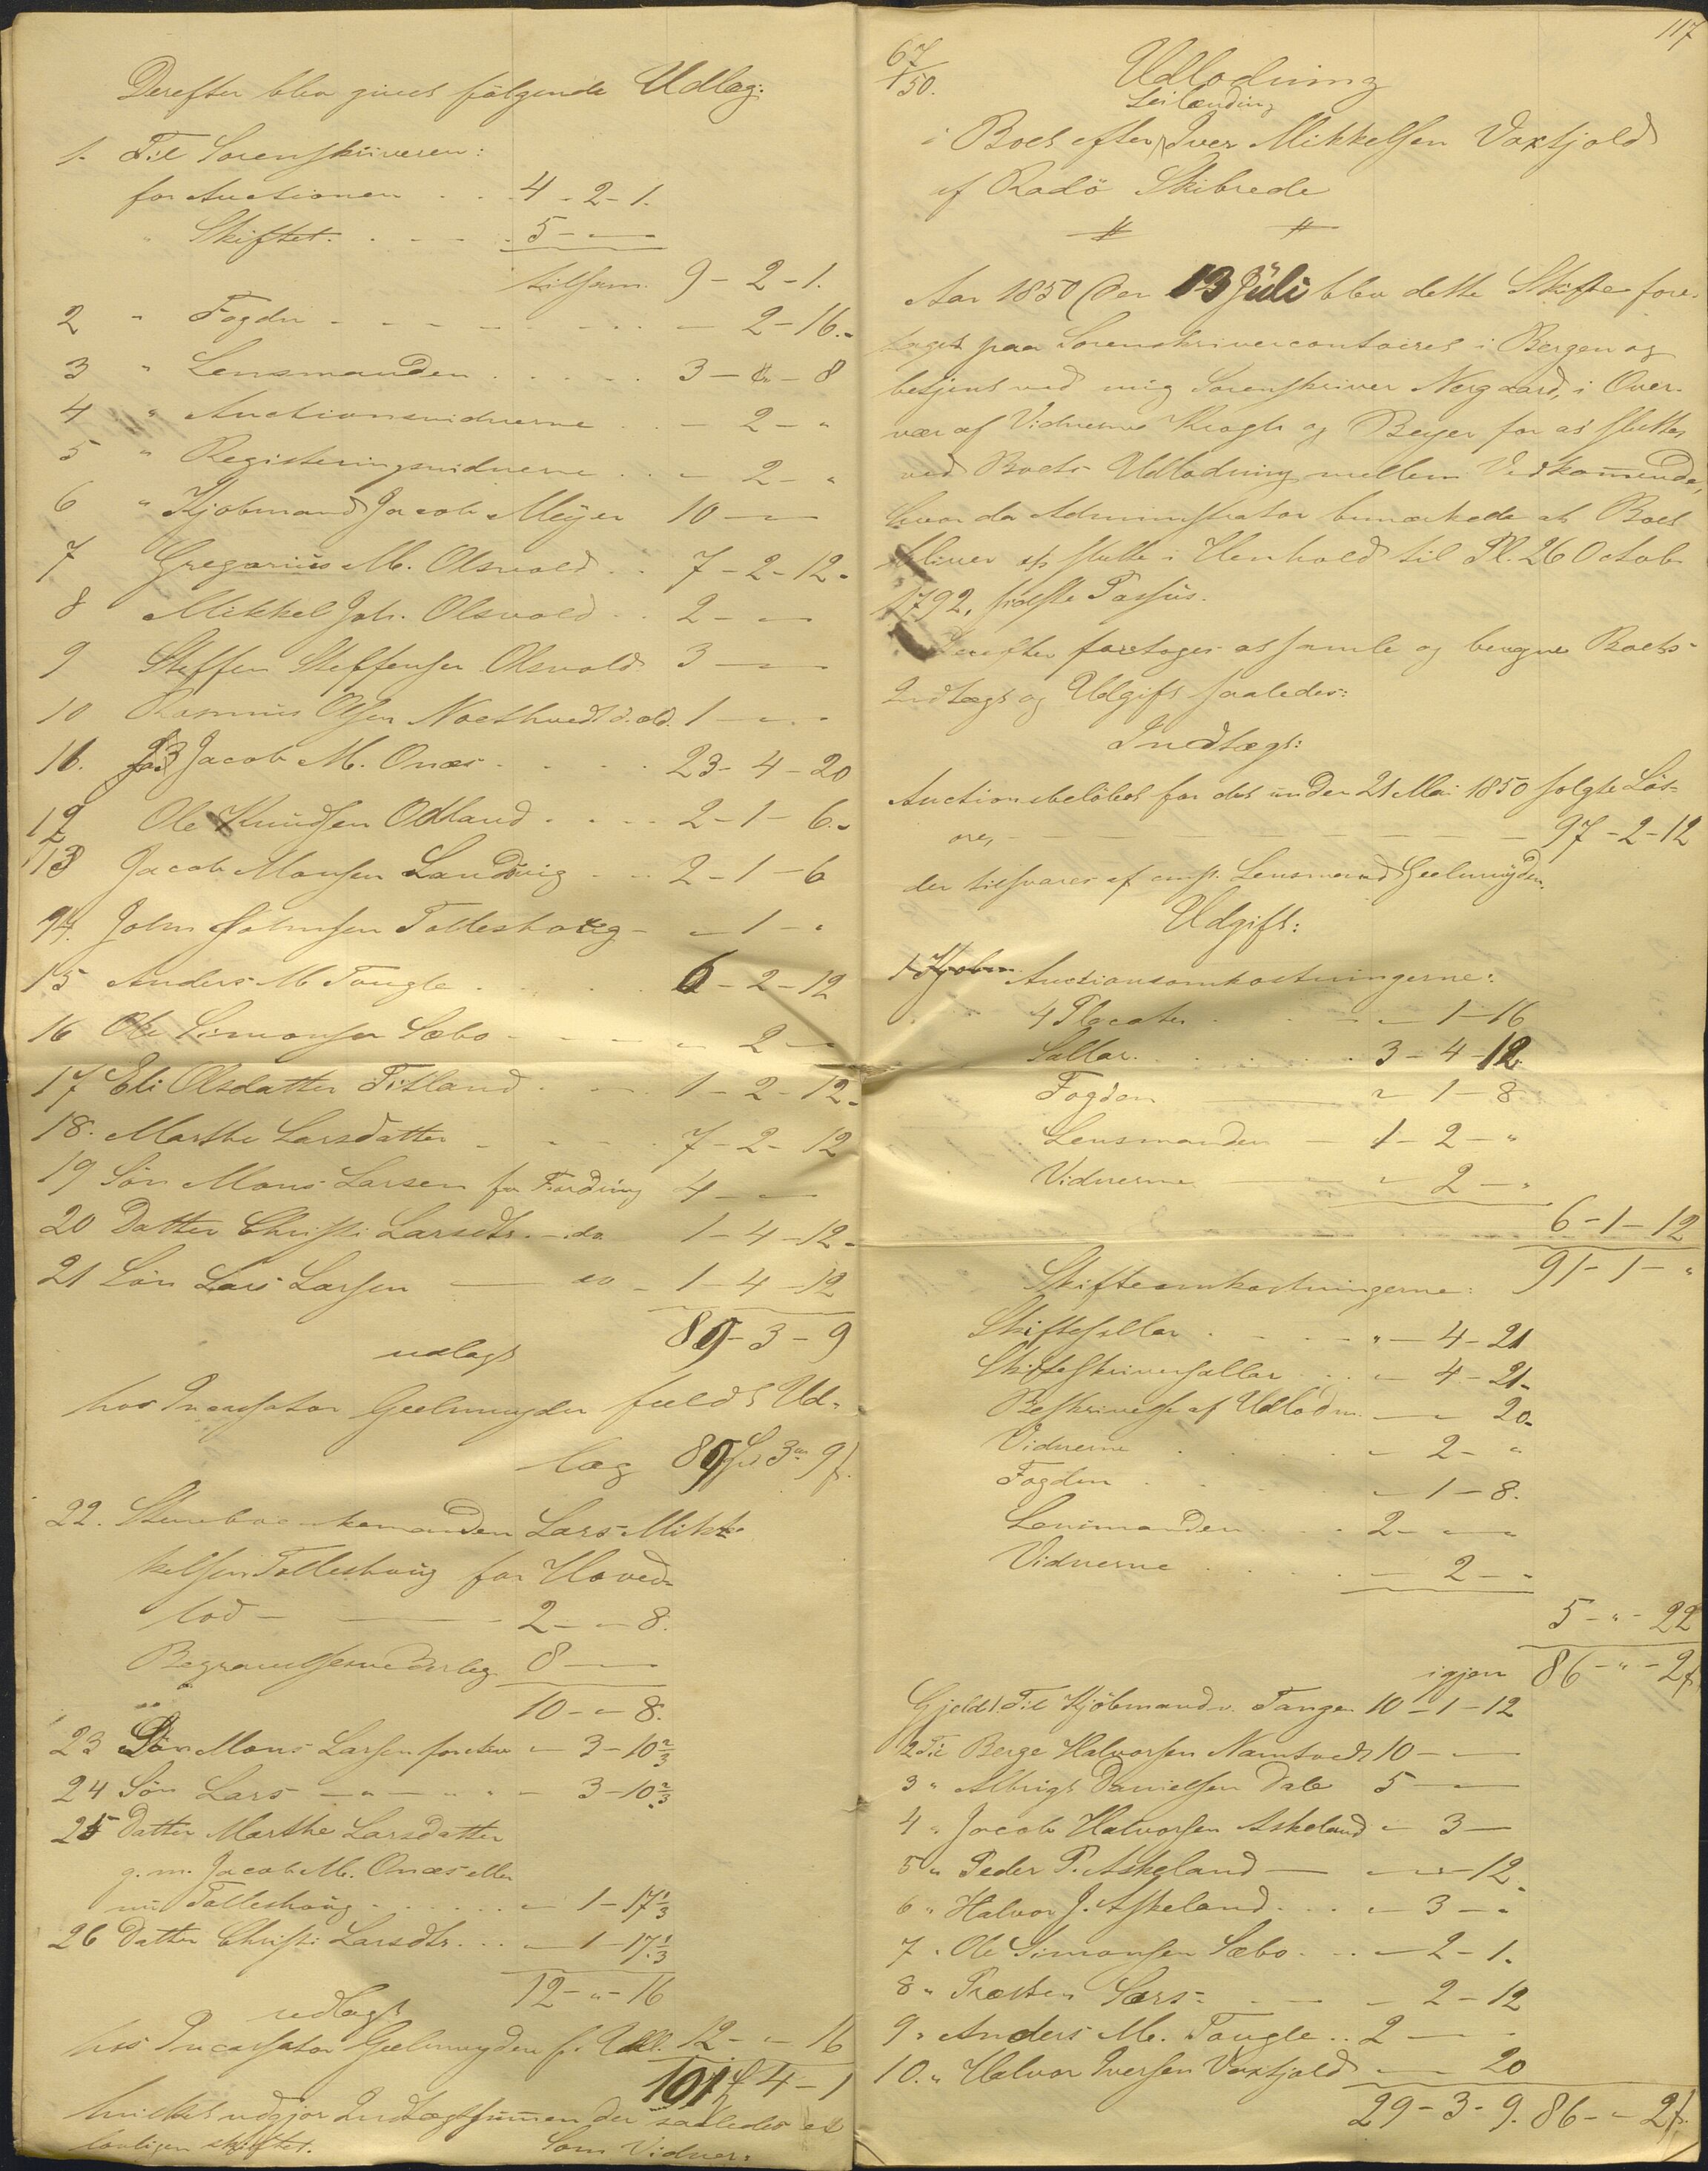 Derefter blev givet følgende Udlæg:
1. Til Sorenskriveren:
for Auctionen . . 4 - 2 - 1.
" Skiftet . . . 5 - " -
tilsam. 9 - 2 - 1.
2 " Fogden - - - - - " - 2 - 16.
3 " Lensmanden . . . . . 3 - " - 8
4 " Auctionsvidnerne . . " - 2 - "
5 " Registeringsvidnerne . . " - 2 - "
6 " Kjøbmand Jacob Meyer 10 - " -
7 Gregorius M. Olsvold . . 7 - 2 - 12.
8 Mikkel Joh. Olsvold . . 2 - " -
9 Steffen Steffensen Olsvold 3 - " -
10 Rasmus Olsen Noethvedt d. æld. 1 - " -
11. Jacob M. Onæs . . . . 23 - 4 - 20
12 Ole Knudsen Odland . . . . 2 - 1 - 6.
13 Jacob Monsen Landsvig . . . 2 - 1 - 6
14. John Johnsen Tolleshoug - " - 1 - "
15 Anders M Tougle . . . . 6 - 2 - 12
16 Ole Simonsen Sæbo - - - " 2 - "
17 Eli Olsdatter Titland . . . 1 - 2 - 12.
18. Marthe Larsdatter - - - . 7 - 2 - 12
19 Søn Mons Larsen for Fordring 4 - " -
20 Datter Christi Larsdtr. - do. 1 - 4 - 12.
21 Søn Lars Larsen — do - 1 - 4 - 12
89 - 3 - 9
udlagt
hos Incassator Geelmuyden fuldt Ud-
læg 89 Spd 3 ort 9 s.
22. Lars Mik-
kelsen Tolleshoug for Hoved-
lod - — - 2 - " - 8.
Begravelsesvederlag 8 - " -
10 - " - 8.
23 Søn Mons Larsen " - 3 - 10 2/3
24 Søn Lars - " - " - " - 3 - 10 2/3
25 Datter Marthe Larsdatter
g. m. Jacob M. Onæs eller
nu Tolleshoug . . . . . . " - 1 - 17 1/3
26 Datter Christi Larsdtr. . . . " - 1 - 17 1/3
12 - " - 16
udlagt
hos Incassator Geelmuyden f. Udl. 12 - " - 16
101 4 - 1
hvilket udgjør Indtægtssummen der saaledes er
lovligen skiftet. Som Vidner:
117
67/50.
Udlodning
Leilænding
i Boet efter Iver Mikkelsen Vaxfjold
af Radø Skibrede
Aar 1850 den 13 Juli blev dette Skifte fore-
taget paa Sorenskrivercontoiret i Bergen og
betjent ved mig Sorenskriver Nergaard, i Over-
vær af Vidnerne Krogh og Beyer for at sluttes
ved Boets Udlodning mellem Vedkommende,
hvor da Administrator bemærkede at Boet
bliver at slutte i Henhold til Pl. 26 Octob.
1792, sidste Passus.
Derefter foretoges at samle og beregne Boets
Indtægt og Udgift saaledes:
Indtægt:
Auctionsbeløbet for det under 21 Mai 1850 solgte Løs-
øre, - — — — — — 97 - 2 - 12
der tilsvares af const. Lensmand Geelmuyden.
Udgift:
1 Kjøbm. Auctionsomkostningerne:
4 Placater . . . - " - 1 - 16
Sallar. . . . . . . 3 - 4 - 12.
Fogden — " - 1 - 8
Lensmanden — 1 - 2 - "
Vidnerne — " 2 - "
6 - 1 - 12
91 - 1 - "
Skifteomkostningerne:
Skiftesallar . - - - " - 4 - 21
Skifteskriversallar . . . " - 4 - 21-
Beskrivelse af Udlodn. — " 20-
Vidnerne . . . . " - 2 - "
Fogden . . . . " - 1 - 8.
Lensmanden . . . . 2 - " - "
Vidnerne . . . . " - 2 - "
5 - " - 22
igjen 86 - " - 2 s.
Gjeld 1. Til Kjöbmand v. Tangen 10 - 1 - 12
2 Til Berge Halvorsen Namtvedt 10 - " -
3 " Albrigt Danielsen Dale 5 - " -
4 " Jacob Halvorsen Askeland " - 3 -
5 " Peder P. Askeland — " - " - 12.
6 " Halvor J. Askeland . . . " - 3 - "
7 " Ole Simonsen Sæbo . . . " - 2 - 1.
8 " Præsten Sars - — - 2 - 12
9 " Anders M. Tougle . . 2 - " -
10. " Halvor Iversen Vaxfjold " - " 20
29 - 3 - 9. 86 - " - 2 s.